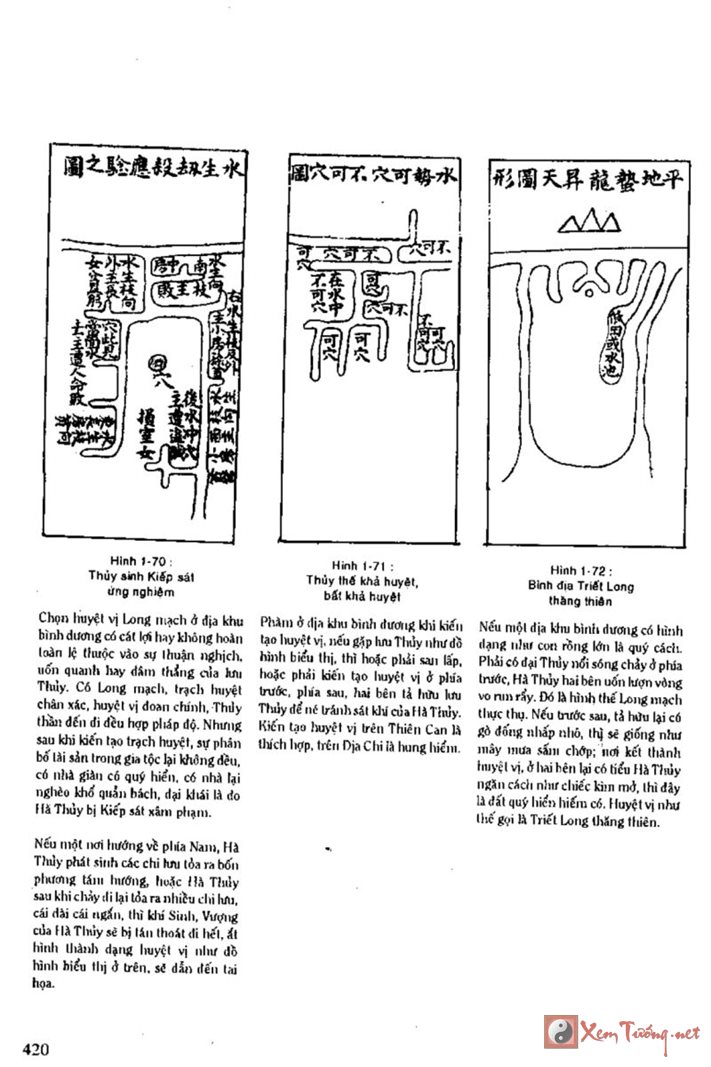 水生劫殺應驗之圖
水勢可穴不可穴圖
平地蟄龍昇天圖形
可穴
不可穴
可不
在水中不可穴
可穴
穴可不
可穴
可穴
不可穴
可穴
穴
損室女
Hình 1-70 :
Thủy sinh Kiếp sát
ứng nghiệm
Chọn huyệt vị Long mạch ở địa khu
bình dương có cát lợi hay không hoàn
toàn lệ thuộc vào sự thuận nghịch,
uốn quanh hay đâm thẳng của lưu
Thủy. Có Long mạch, trạch huyệt
chân xác, huyệt vị đoan chính, Thủy
thần đến đi đều hợp pháp độ. Nhưng
sau khi kiến tạo trạch huyệt, sự phân
bố tài sản trong gia tộc lại không đều,
có nhà giàn có quý hiển, có nhà lại
nghèo khổ quẫn bách, đại khái là do
Hà Thủy bị Kiếp sát xâm phạm.
Nếu một nơi hướng về phía Nam, Hà
Thủy phát sinh các chi lưu tỏa ra bốn
phương tám hướng, hoặc Hà Thủy
sau khi chảy đi lại tỏa ra nhiều chi lưu,
cái dài cái ngắn, thì khí Sinh, Vượng
của Hà Thủy sẽ bị tán thoát đi hết, ắt
hình thành dạng huyệt vị như đồ
hình biểu thị ở trên, sẽ dẫn đến tai
họa.
Hình 1-71 :
Thủy thế khả huyệt,
bất khả huyệt
Phàm ở địa khu bình dương khi kiến
tạo huyệt vị, nếu gặp lưu Thủy như đồ
hình biểu thị, thì hoặc phải san lấp,
hoặc phải kiến tạo huyệt vị ở phía
trước, phía sau, hai bên tả hữu lưu
Thủy để né tránh sát khí của Hà Thủy.
Kiến tạo huyệt vị trên Thiên Can là
thích hợp, trên Địa Chi là hung hiểm.
Hình 1-72 :
Bình địa Triết Long
thăng thiên
Nếu một địa khu bình dương có hình
dạng như con rồng lớn là quý cách.
Phải có đại Thủy nổi sóng chảy ở phía
trước, Hà Thủy hai bên uốn lượn vòng
vo run rẩy. Đó là hình thế Long mạch
thực thụ. Nếu trước sau, tả hữu lại có
gò đống nhấp nhô, thì sẽ giống như
mây mưa sấm chớp; nơi kết thành
huyệt vị, ở hai bên lại có tiểu Hà Thủy
ngăn cách như chiếc kìm mở, thì đây
là đất quý hiển hiếm có. Huyệt vị như
thế gọi là Triết Long thăng thiên.
420
XemTướng.net